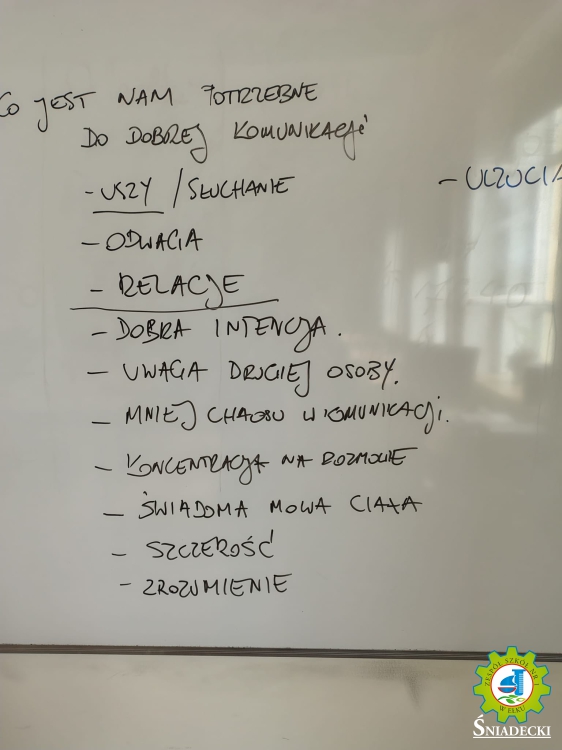 CO JEST NAM POTRZEBNE
DO DOBREJ KOMUNIKACJI
- USZY / SŁUCHANIE
- ODWAGA
- RELACJE
- DOBRA INTENCJA.
- UWAGA DRUGIEJ OSOBY.
- MNIEJ CHAOSU W KOMUNIKACJI.
- KONCENTRACJA NA ROZMOWIE
- ŚWIADOMA MOWA CIAŁA
- SZCZEROŚĆ
- ZROZUMIENIE
- UCZUCIA
ZESPÓŁ SZKÓŁ NR 1
W EŁKU
ŚNIADECKI